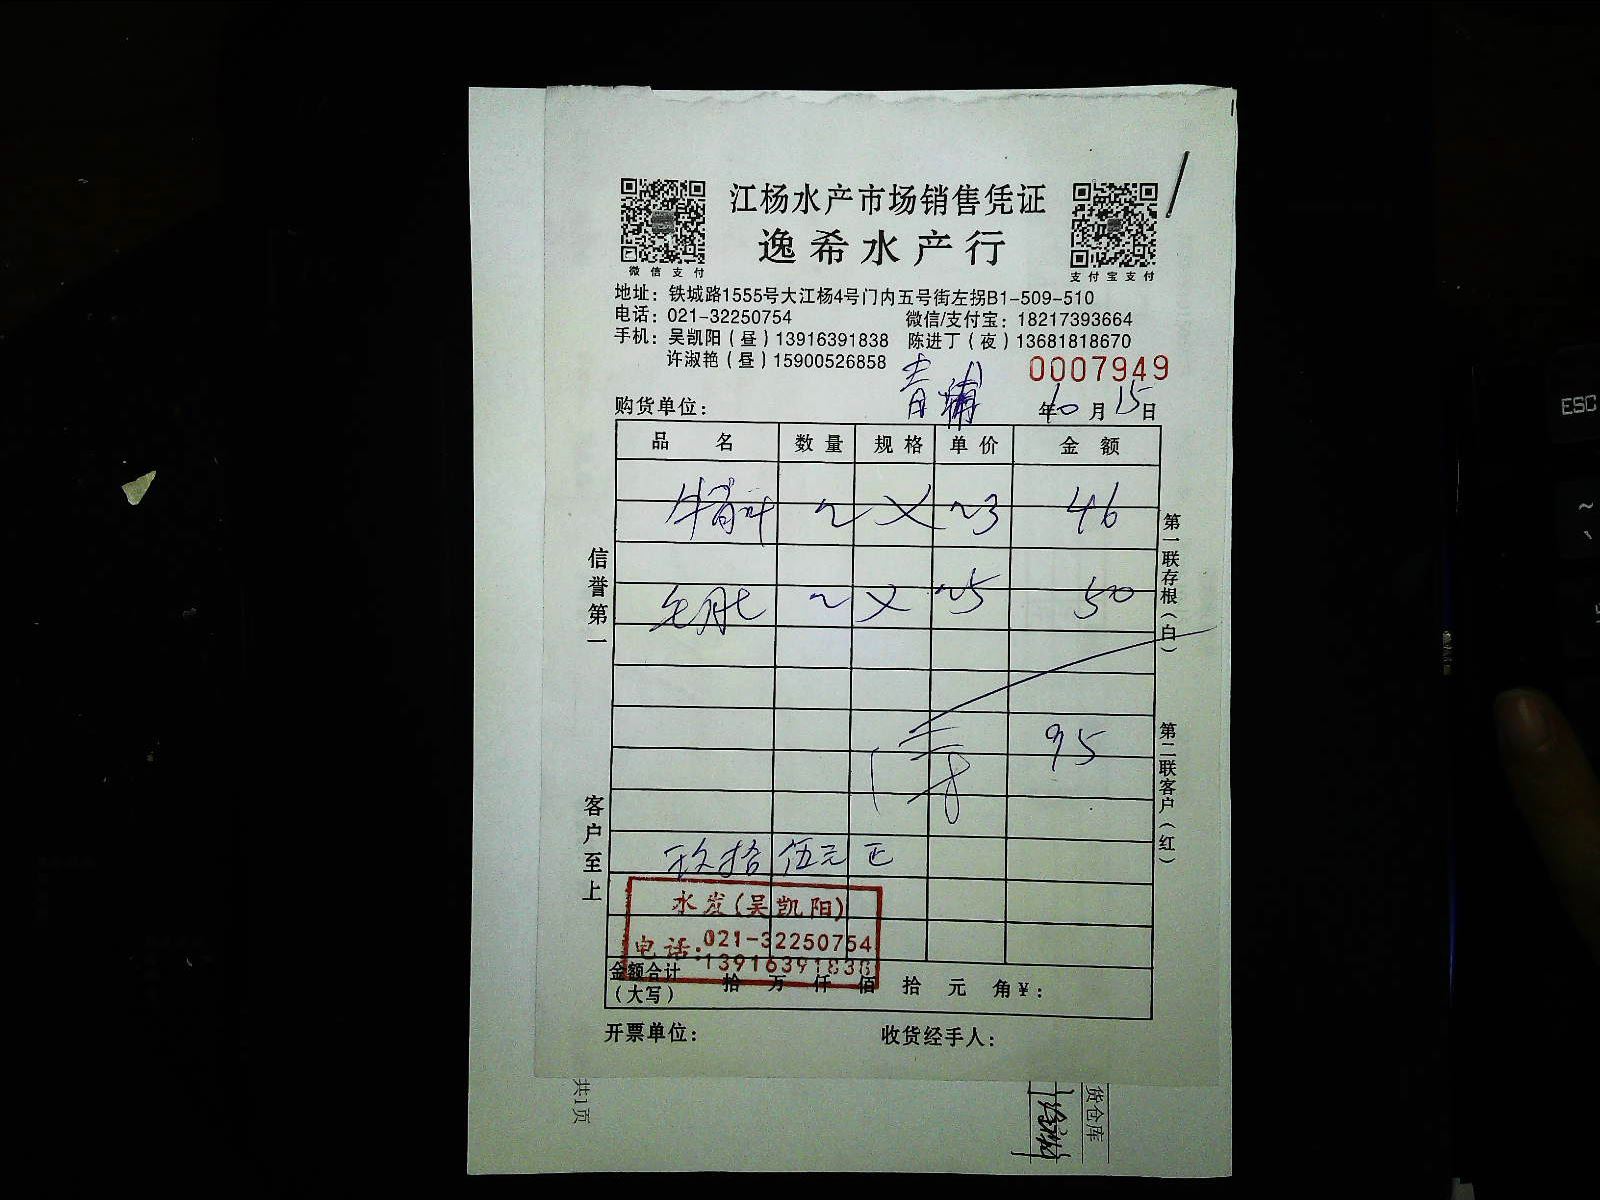 江杨水产市场销售凭证
逸希水产行
微信支付
支付宝支付
地址：铁城路1555号大江杨4号门内五号街左拐B1-509-510
电话：021-32250754 微信/支付宝：18217393664
手机：吴凯阳（昼）13916391838 陈进丁（夜）13681818670
许淑艳（昼）15900526858
0007949
购货单位： 青浦 年10月15日
品名 数量 规格 单价 金额
牛百叶 2 × 23 46
毛肚 2 × 25 50
95
玖拾伍元正
水发(吴凯阳)
电话：021-32250754
13916391838
金额合计（大写） 拾 万 仟 佰 拾 元 角￥：
开票单位： 收货经手人：
信誉第一
客户至上
第一联存根（白）
第二联客户（红）
共1页
货仓库
ESC